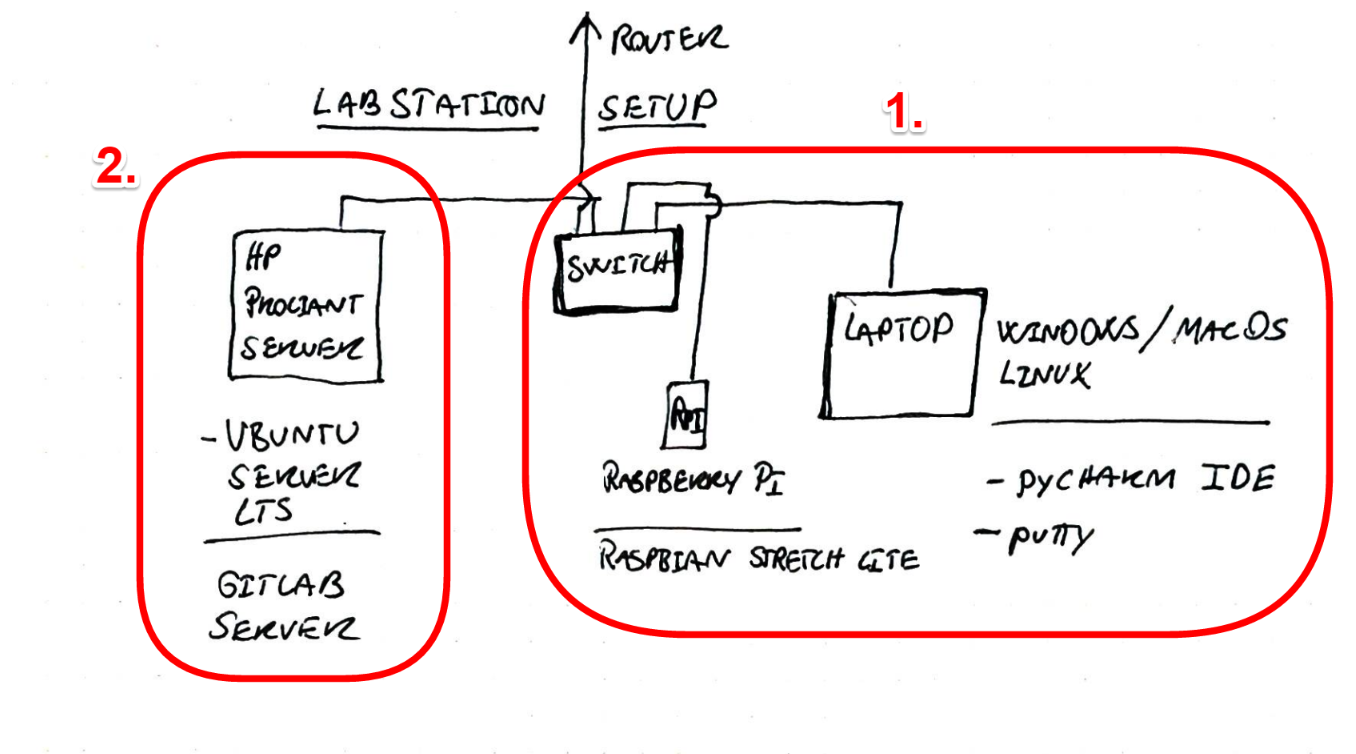 ROUTER
LAB STATION SETUP
1.
2.
HP
PROLIANT
SERVER
- UBUNTU
SERVER
LTS
GITLAB
SERVER
SWITCH
RPI
RASPBERRY PI
RASPBIAN STRETCH LITE
LAPTOP
WINDOWS / MACOS
LINUX
- PYCHARM IDE
- PUTTY